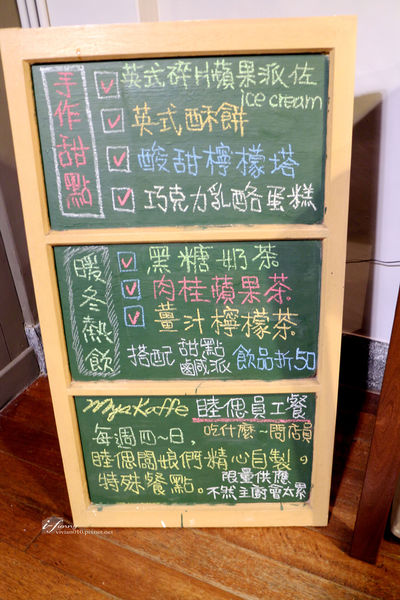 手作甜點
英式碎片蘋果派佐
ice cream
英式酥餅
酸甜檸檬塔
巧克力乳酪蛋糕
暖冬熱飲
黑糖奶茶
肉桂蘋果茶
薑汁檸檬茶
搭配 甜點 鹹派 飲品折50
Mya Kaffe 睦偲員工餐
每週四~日, 吃什麼~問店員
睦偲闆娘們精心自製。
特殊餐點。限量供應
不然主廚會太累
vivian010.pixnet.net